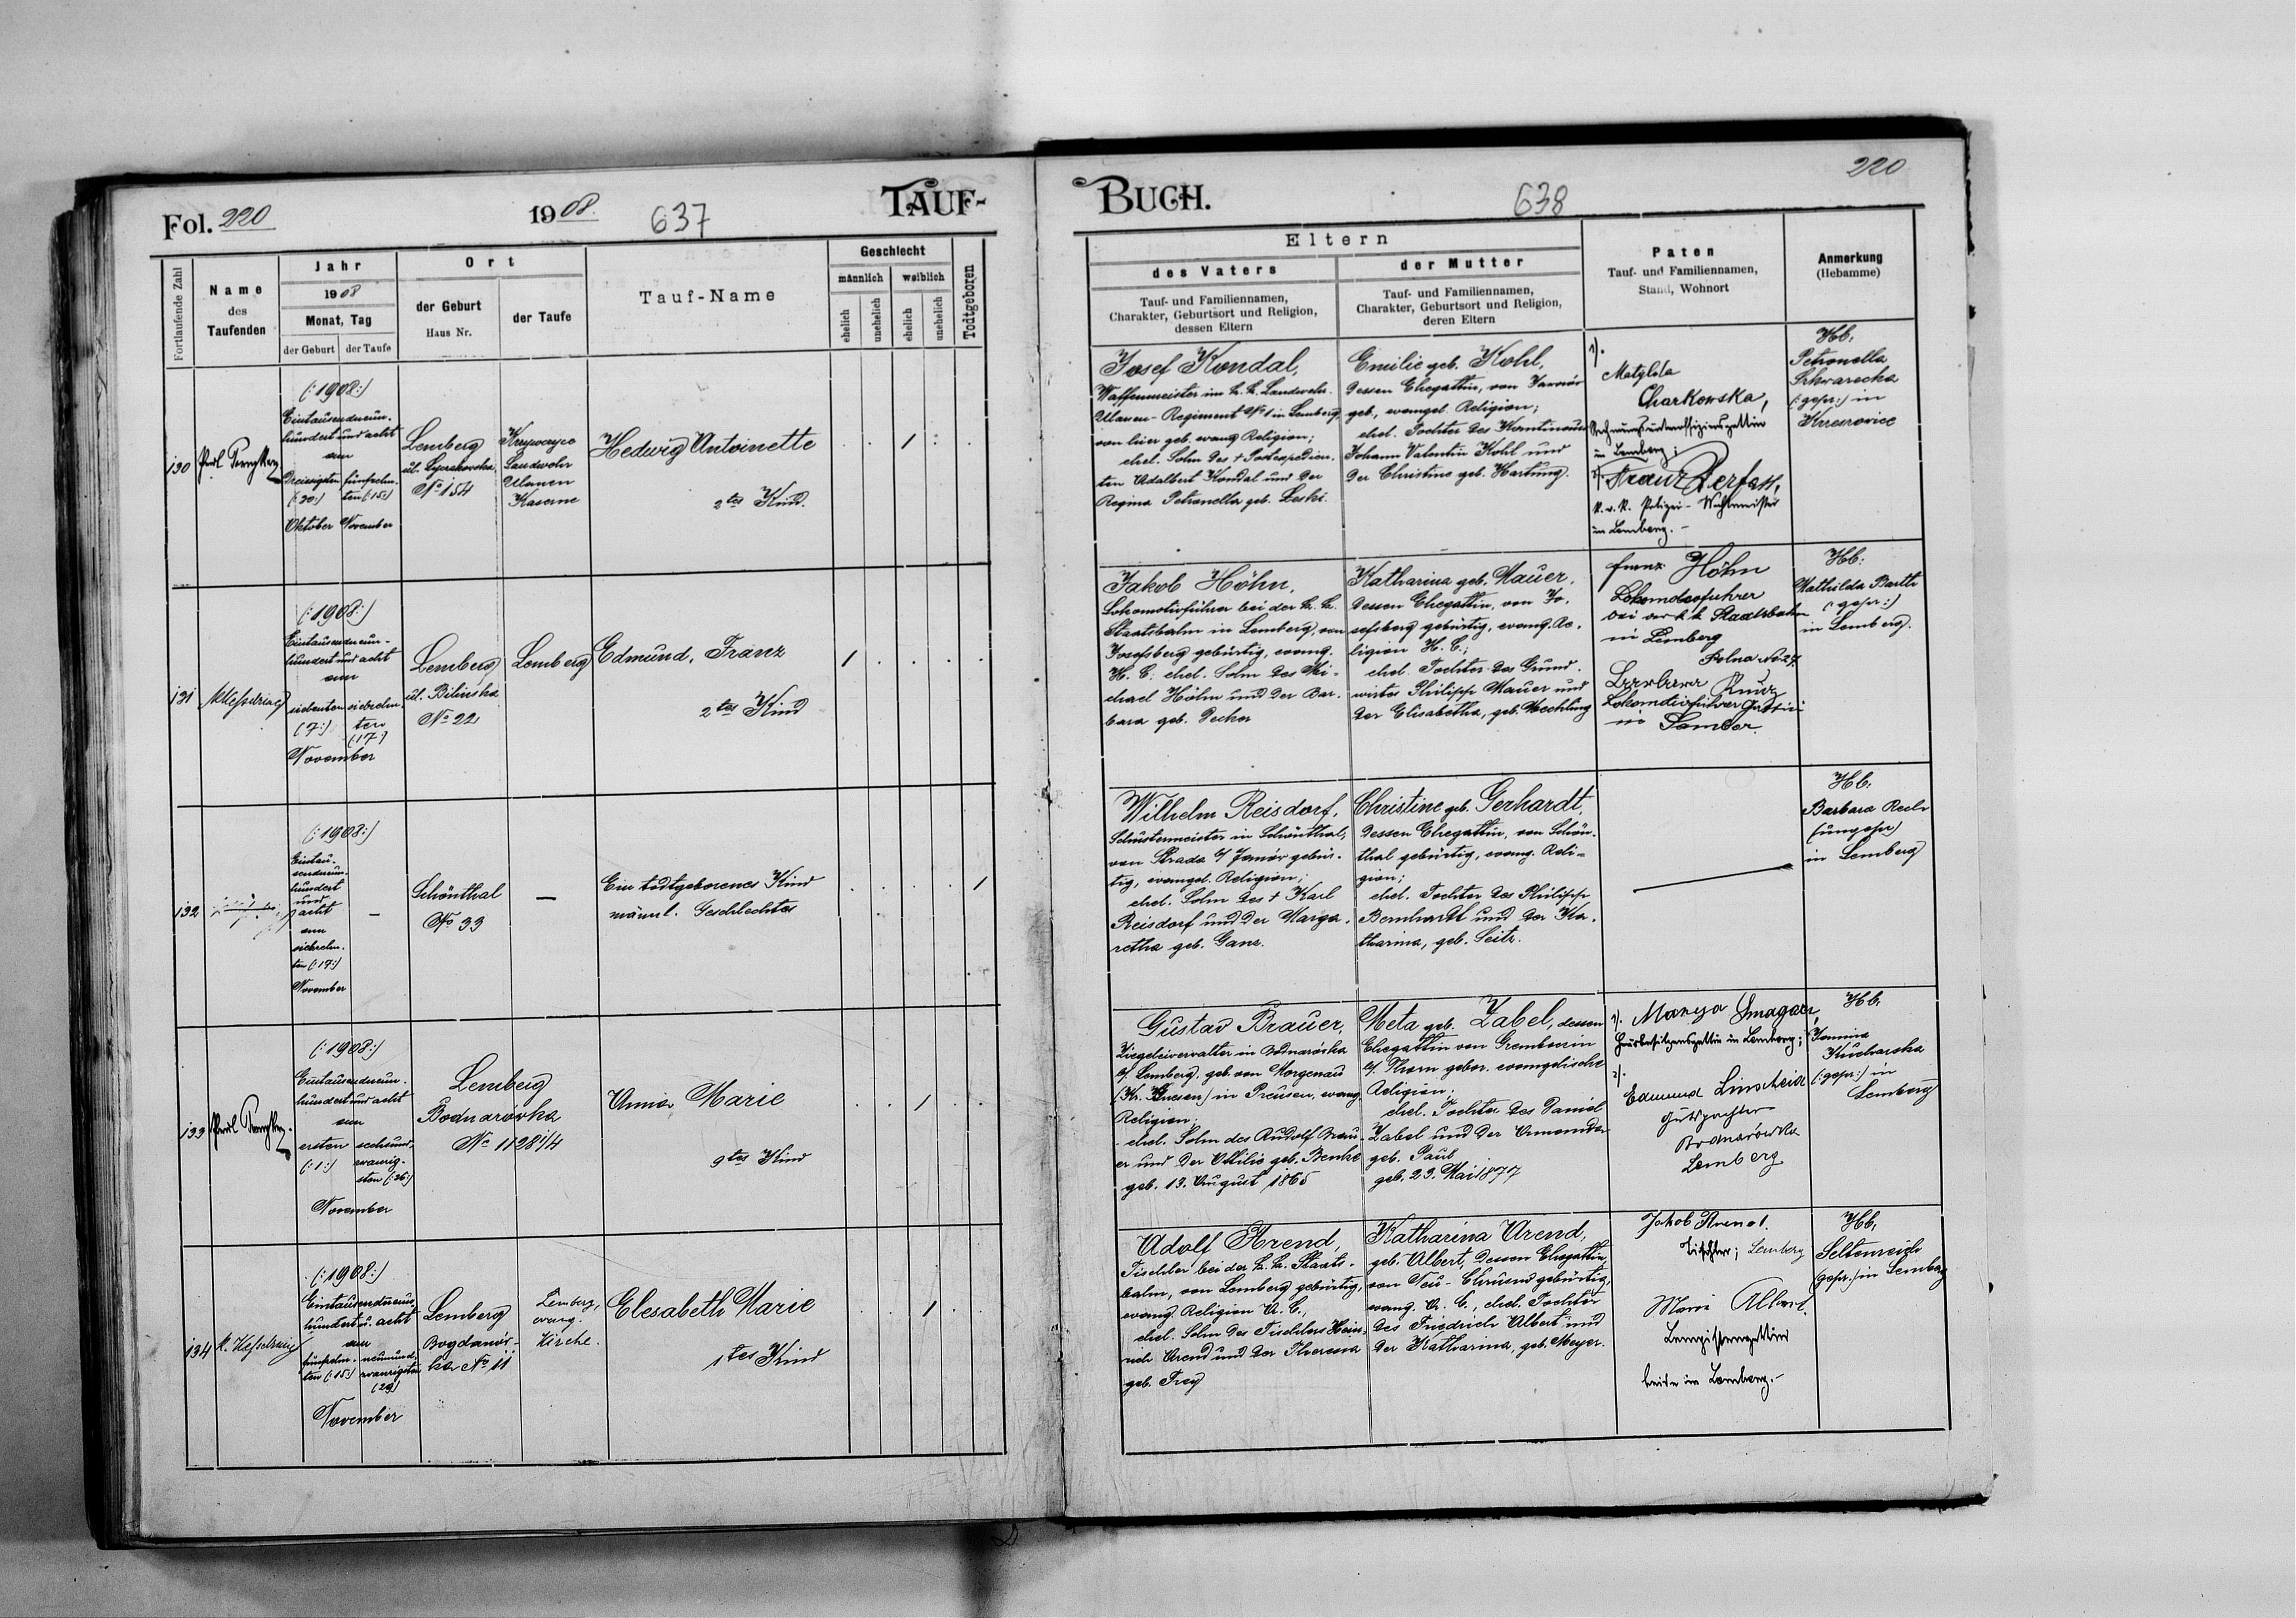 Fol. 220
1908.
637
TAUF-
Fortlaufende Zahl
Name
des
Taufenden
Jahr
1908
Monat, Tag
der Geburt
der Taufe
Ort
der Geburt
Haus Nr.
der Taufe
Tauf-Name
Geschlecht
männlich
weiblich
ehelich
unehelich
ehelich
unehelich
Todtgeboren
130
(:1908:)
Eintausendneun-
hundert und acht
am
Dreissigsten
(:30:)
Oktober
fünfzehn-
ten (:15:)
November
Lemberg
No 154
Landwehr
Ulanen
Kaserne
Hedwig Antoinette
2tes Kind.
131
(:1908:)
Eintausendneun-
hundert und acht
am
siebenten
(7:)
siebzehn-
ten
(:17:)
November
Lemberg
ul. Bilinska
No 22
Lemberg
Edmund, Franz
2tes Kind
132
(:1908:)
Eintau-
sendneun-
hundert
und
acht
am
siebzehn-
ten (:17:)
November
—
Schönthal
No 33
—
Ein todtgeborenes Kind
männl. Geschlechtes
133
(:1908:)
Eintausendneun-
hundert und acht
am
ersten
(:1:)
sechsund-
zwanzig-
sten (:26:)
November
Lemberg
Bodnarówka
No 1128 1/4
Anna Marie
9tes Kind
134
(:1908:)
Eintausendneun-
hundert u. acht
am
fünfzehn-
ten (:15:)
neunund-
zwanzigsten
(29)
November
Lemberg
Bogdanów-
ka No 11
Lemberg,
evang.
Kirche.
Elesabeth Marie
1tes Kind
BUCH.
638
220
Eltern
des Vaters
Tauf- und Familiennamen,
Charakter, Geburtsort und Religion,
dessen Eltern
der Mutter
Tauf- und Familiennamen,
Charakter, Geburtsort und Religion,
deren Eltern
Paten
Tauf- und Familiennamen,
Stand, Wohnort
Anmerkung
(Hebamme)
Josef Kondal,
Waffenmeister im k. k. Landwehr
Ulanen-Regiment No 1 in Lemberg,
von hier geb. evang. Religion;
ehel. Sohn des † Postexpedien-
ten Adalbert Kondal und der
Regina Petronella geb. Leski.
Emilie geb. Kohl,
dessen Ehegattin, von Jaworów
geb., evangel. Religion;
ehel. Tochter des
Johann Valentin Kohl und
der Christine geb. Hartung.
1).
Matylda
Charkowska,
in Lemberg;
2). Franz
k. u. k. Polizei-Wachtmeister
in Lemberg.-
Hb.
Petronella
(:gepr:) in
Jakob Höhn,
Lokomotivführer bei der k. k.
Staatsbahn in Lemberg, von
Josefsberg gebürtig, evang.
H. C. ehel. Sohn des Mi-
chael Höhn und der Bar-
bara geb. Decker
Katharina geb. Mauer,
dessen Ehegattin, von Jo-
sefsberg gebürtig, evang. Re-
ligion H. C.;
ehel. Tochter des Grund-
wirtes Philipp Mauer und
der Elisabetha, geb. Mechling
Franz Höhn
Lokomotivführer
bei der k k Staatsbahn
in Lemberg
Polna No 27
Barbara
Lokomotivführer Gattin
in Sambor.
Hb:
Mathilda Barth
(:gepr:)
in Lemberg.
Wilhelm Reisdorf,
Schustermeister in Schönthal,
gebür-
tig, evangel. Religion;
ehel. Sohn des † Karl
Reisdorf und der Marga-
retha geb. Ganz.
Christine geb. Gerhardt,
dessen Ehegattin, von Schön-
thal gebürtig, evang. Reli-
gion;
ehel. Tochter des Philipp
Bernhardt und der Ka-
tharina, geb. Seitz.
Hb.
Barbara Rech
(ungepr)
in Lemberg
Gustav Brauer,
Ziegeleiverwalter in Bodnarówka
b/ Lemberg, geb. von Morgenau
(Kr. Gnesen) in Preussen, evang
Religion;
ehel. Sohn des Rudolf Brau-
er und der Ottilie geb. Benke
geb. 13. August 1865
Meta geb. Zabel, dessen
Ehegattin von Gremboczin
b/ Thorn gebor. evangelische
Religion;
ehel. Tochter des Daniel
Zabel und der Amanda
geb. Paul
geb. 23. Mai 1877
1). Marya Smagacz,
Hausbesitzersgattin in Lemberg;
2).
Edmund Linscheid
Gutspächter
Bodnarówka
Lemberg
Hb.
Janina
Kucharska
(:gepr:) in
Lemberg
Adolf Arend,
Tischler bei der k. k. Staats-
bahn, von Lemberg gebürtig,
evang. Religion A. C.,
ehel. Sohn des Tischlers Hein-
rich Arend und der Theresia
geb. Frey
Katharina Arend,
geb. Albert, dessen Ehegattin,
von Neu-Chrusno gebürtig,
evang. A. C., ehel. Tochter
des Friedrich Albert und
der Katharina, geb. Meyer.
Jakob Arend.
Tischler; Lemberg
Marie Albert.
beide in Lemberg.-
Hb,
Seltenreich
(gepr.) in Lemberg